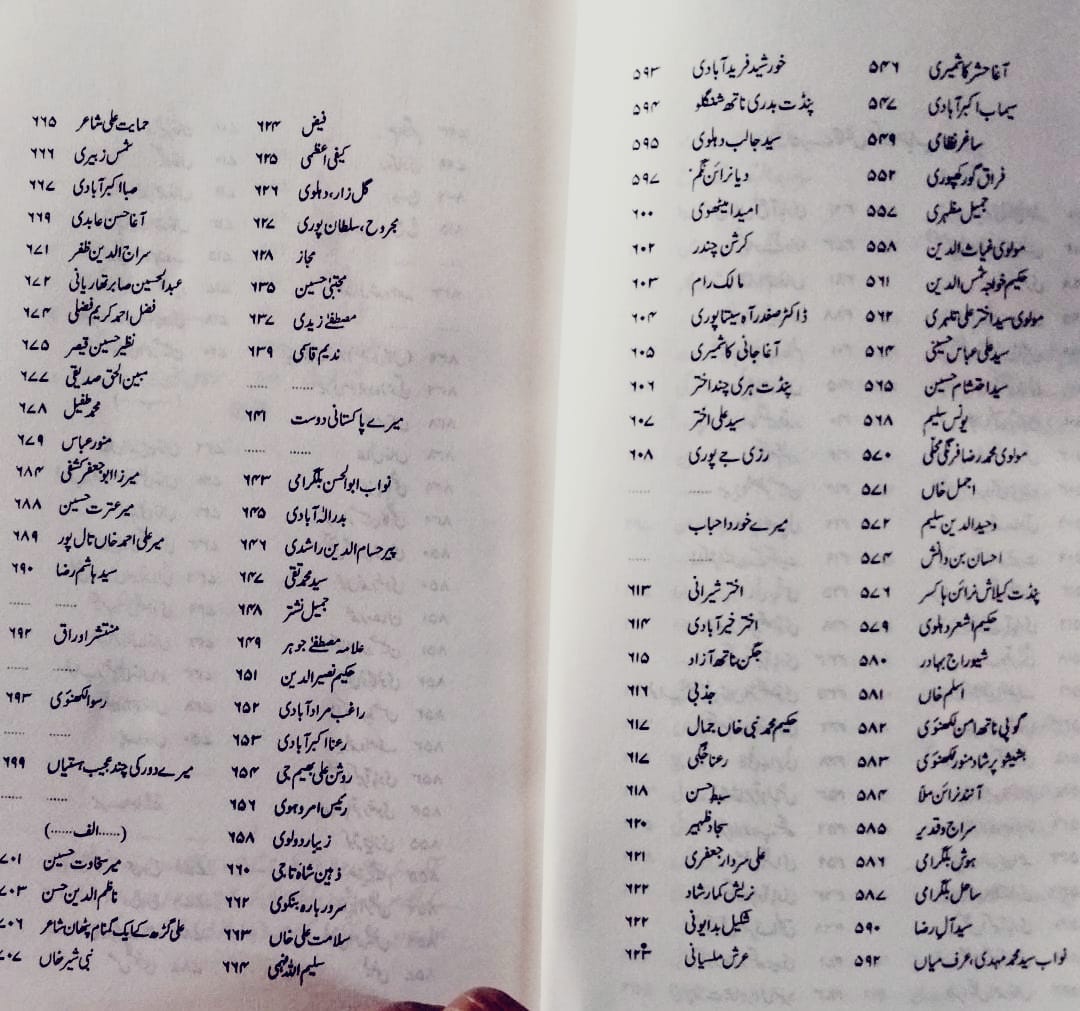 آغا حشر کاشمیری ۵۴۶
سیماب اکبر آبادی ۵۴۷
ساغر نظامی ۵۴۹
فراق گورکھپوری ۵۵۲
جمیل مظہری ۵۵۷
مولوی غیاث الدین ۵۵۸
حکیم خواجہ شمس الدین ۵۶۱
مولوی سید اختر علی تلہری ۵۶۲
سید علی عباس حسینی ۵۶۴
سید احتشام حسین ۵۶۵
یونس سلیم ۵۶۸
مولوی محمد رضا فرنگی محلی ۵۷۰
اجمل خاں ۵۷۱
وحید الدین سلیم ۵۷۲
احسان بن دانش ۵۷۴
پنڈت کیلاش نرائن ہاکسر ۵۷۶
حکیم آشعر دہلوی ۵۷۹
شیوراج بہادر ۵۸۰
اسلم خاں ۵۸۱
گوپی ناتھ امن لکھنوی ۵۸۲
بشیشور پرشاد منور لکھنوی ۵۸۳
آنند نرائن ملا ۵۸۴
سراج وقدیر ۵۸۵
ہوش بلگرامی ۵۸۶
ساحل بلگرامی ۵۸۷
سید آل رضا ۵۹۰
نواب سید محمد مہدی، عرف میاں ۵۹۲
خورشید فرید آبادی ۵۹۳
پنڈت بدری ناتھ شنگلو ۵۹۴
سید جالب دہلوی ۵۹۵
دیا نرائن نگم ۵۹۷
امید امیٹھوی ۶۰۰
کرشن چندر ۶۰۲
مالک رام ۶۰۳
ڈاکٹر صفدر آہ سیتاپوری ۶۰۴
آغا جانی کاشمیری ۶۰۵
پنڈت ہری چند اختر ۶۰۶
سید علی اختر ۶۰۷
رزی جے پوری ۶۰۸
...... ......
میرے خورد احباب
...... ......
اختر شیرانی ۶۱۳
اختر خیر آبادی ۶۱۴
جگن ناتھ آزاد ۶۱۵
جذبی ۶۱۶
حکیم محمد نبی خاں جمال ۶۱۷
رعنا جگی ۶۱۷
سبط حسن ۶۱۸
سجاد ظہیر ۶۲۰
علی سردار جعفری ۶۲۱
نریش کمار شاد ۶۲۲
شکیل بدایونی ۶۲۲
عرش ملسیانی ۶۲۳
فیض ۶۲۴
کیفی اعظمی ۶۲۵
گل زار، دہلوی ۶۲۶
مجروح، سلطان پوری ۶۲۷
مجاز ۶۲۸
مجتبیٰ حسین ۶۳۵
مصطفےٰ زیدی ۶۳۷
ندیم قاسمی ۶۳۹
...... ......
میرے پاکستانی دوست ۶۴۱
...... ......
نواب ابوالحسن بلگرامی ۶۴۳
بدر الہ آبادی ۶۴۵
پیر حسام الدین راشدی ۶۴۶
سید محمد تقی ۶۴۷
جمیل نشتر ۶۴۸
علامہ مصطفےٰ جوہر ۶۴۹
حکیم نصیر الدین ۶۵۱
راغب مراد آبادی ۶۵۲
رعنا اکبر آبادی ۶۵۳
روشن علی بھیم جی ۶۵۴
رئیس امروہوی ۶۵۶
زیبا ردولوی ۶۵۸
ذہین شاہ تاجی ۶۶۰
سرور بارہ بنکوی ۶۶۲
سلامت علی خاں ۶۶۳
سلیم اللہ فہمی ۶۶۴
حمایت علی شاعر ۶۶۵
شمس زبیری ۶۶۶
صبا اکبر آبادی ۶۶۷
آغا حسن عابدی ۶۶۹
سراج الدین ظفر ۶۷۱
عبد الحسین صابر تھاریانی ۶۷۲
فضل احمد کریم فضلی ۶۷۴
نظیر حسین قیصر ۶۷۵
مبین الحق صدیقی ۶۷۷
محمد طفیل ۶۷۸
منور عباس ۶۷۹
میرزا ابو جعفر کشفی ۶۸۴
میر عترت حسین ۶۸۸
میر علی احمد خاں تال پور ۶۸۹
سید ہاشم رضا ۶۹۰
...... ......
منتشر اوراق ۶۹۲
...... ......
رسوا لکھنوی ۶۹۳
...... ......
میرے دور کی چند عجیب ہستیاں ۶۹۹
...... ......
(......الف......)
میر سخاوت حسین ۷۰۱
ناظم الدین حسن ۷۰۳
علی گڑھ کے ایک گمنام پٹھان شاعر ۷۰۶
نبی شیر خاں ۷۰۷